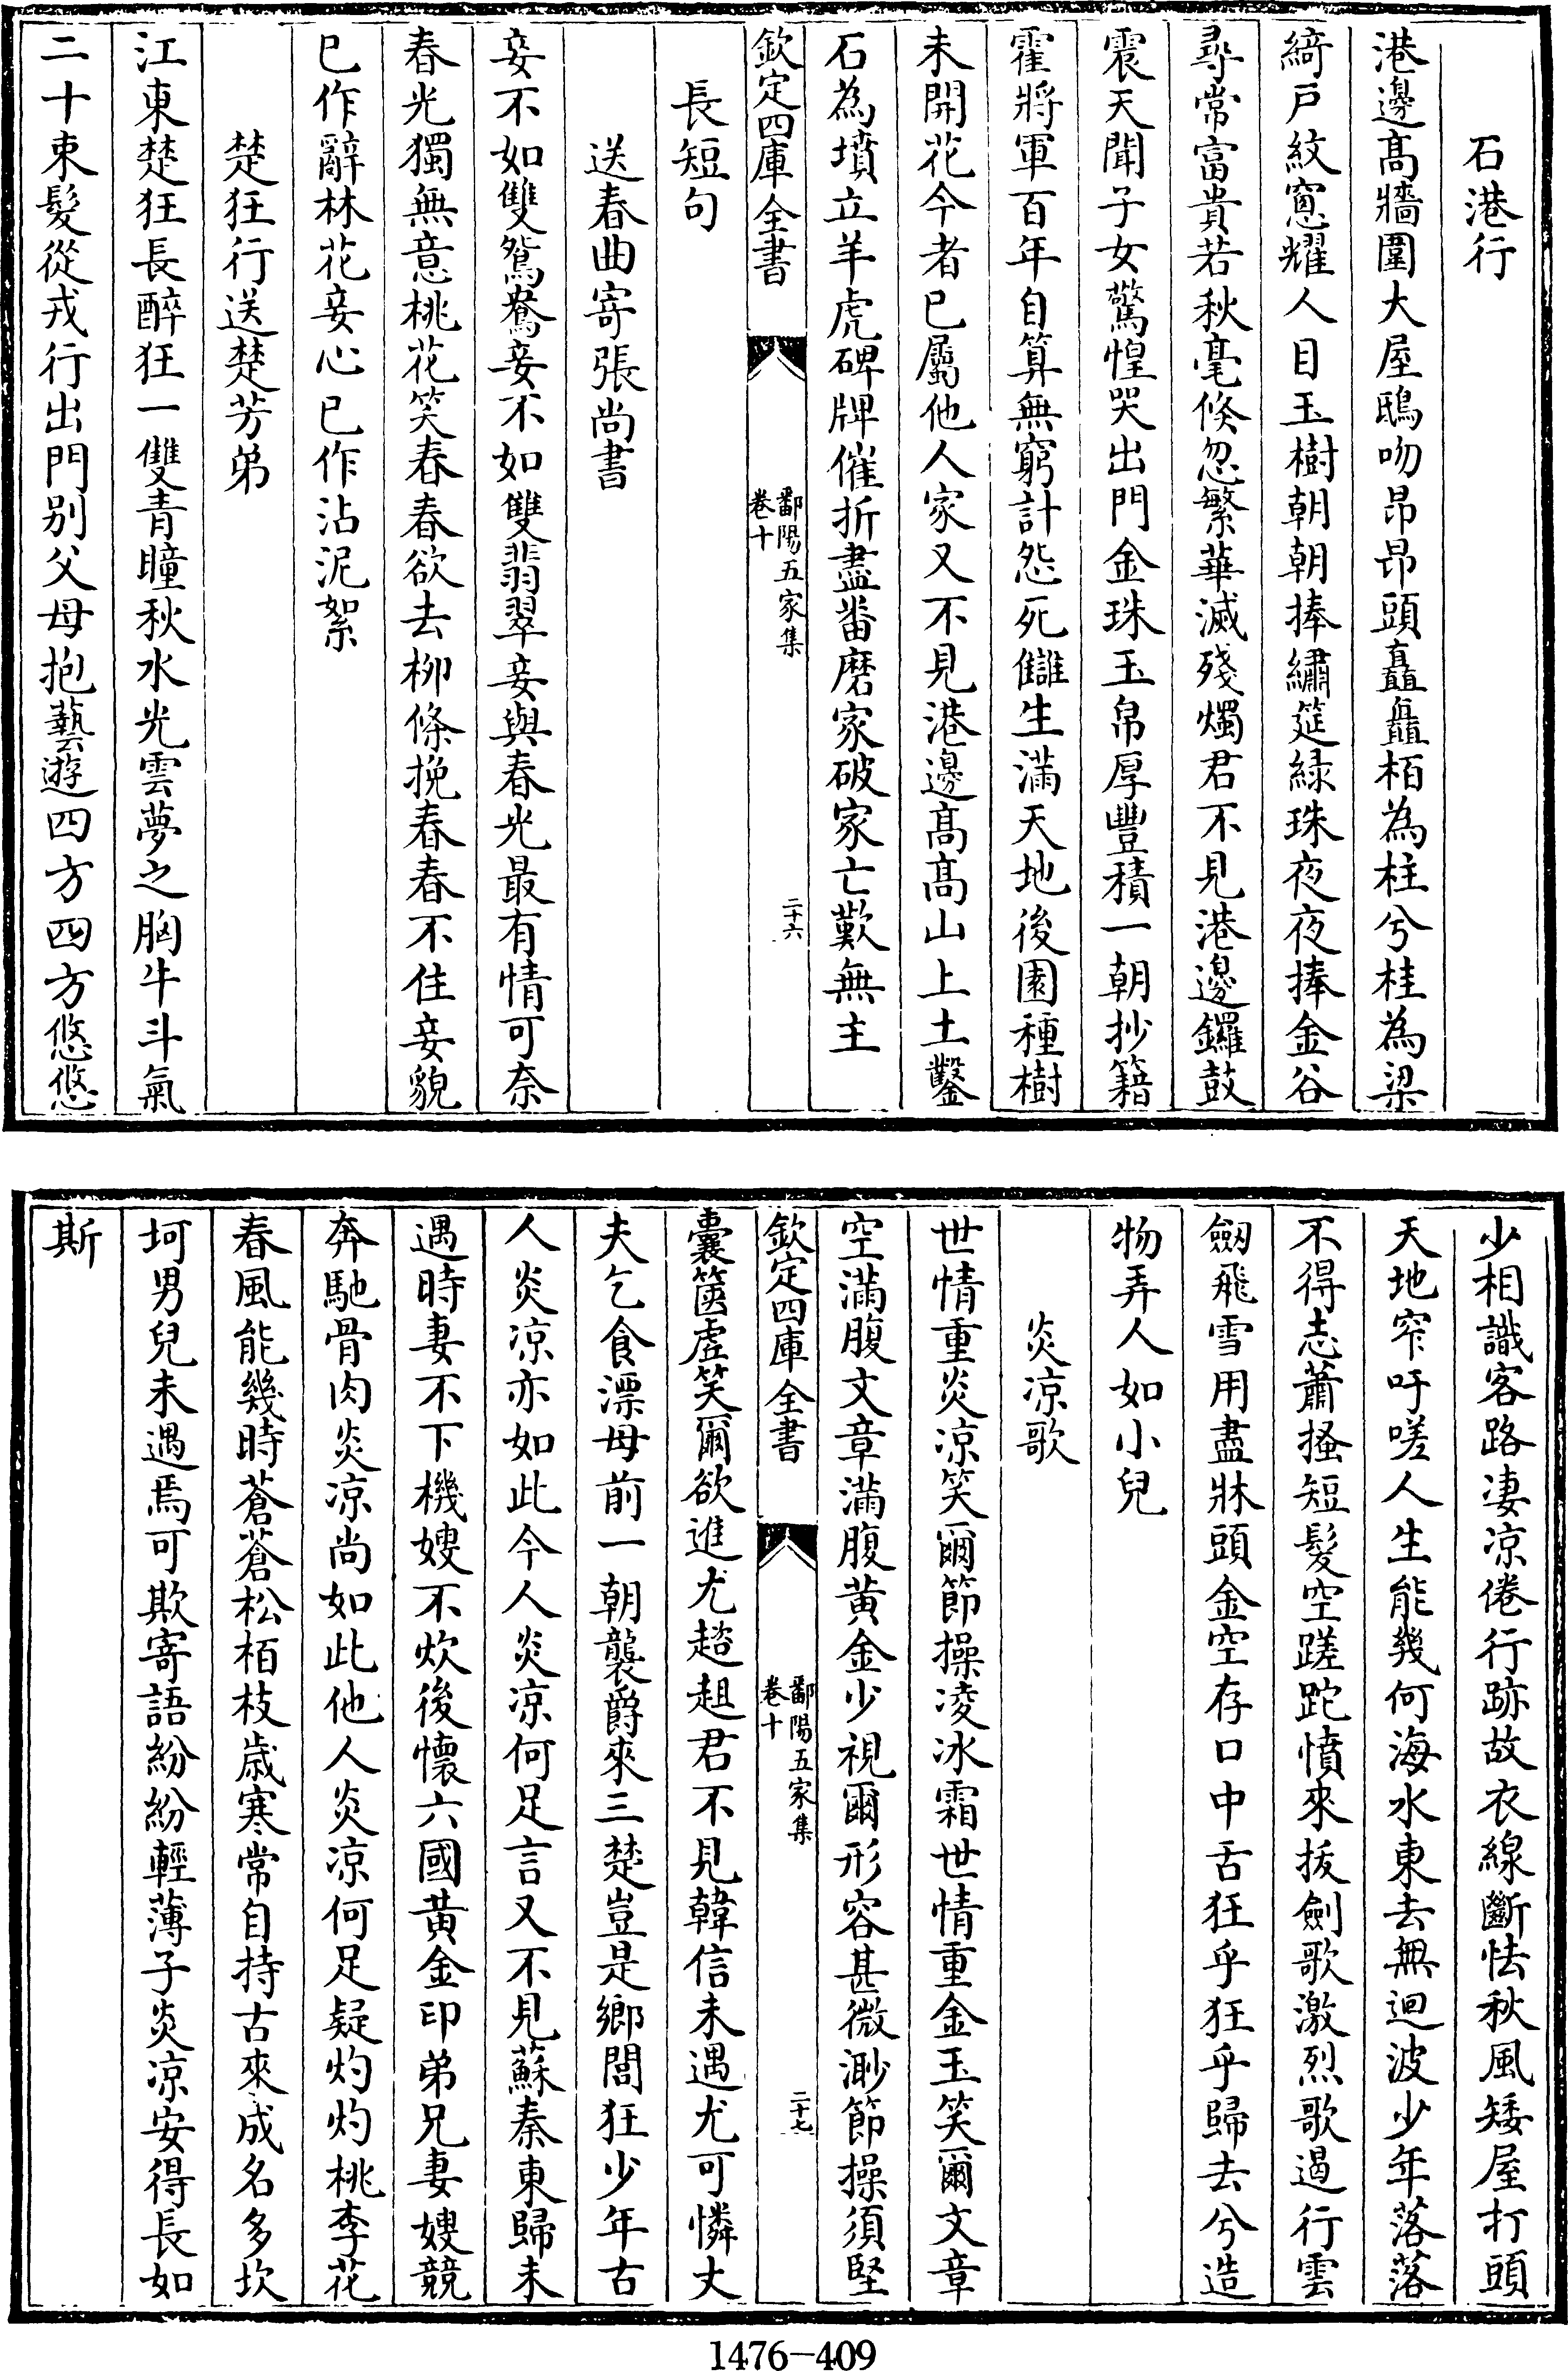 石港行
港邊髙牆圍大屋鴟吻昂昂頭矗矗栢為柱兮桂為梁
綺戸紋窻耀人目玉樹朝朝捧繡筵緑珠夜夜捧金谷
尋常富貴若秋毫倐忽繁華滅殘燭君不見港邊鑼鼓
震天聞子女驚惶哭出門金珠玉帛厚豐積一朝抄籍
霍將軍百年自算無窮計怨死讎生滿天地後園種樹
未開花今者已屬他人家又不見港邊髙髙山上土鑿
石為墳立羊虎碑牌催折盡畨磨家破家亡歎無主
欽定四庫全書
鄱陽五家集
卷十
二十六
長短句
送春曲寄張尚書
妾不如雙鴛鴦妾不如雙翡翠妾與春光最有情可奈
春光獨無意桃花笑春春欲去柳條挽春春不住妾貌
已作辭林花妾心已作沾泥絮
楚狂行送楚芳弟
江東楚狂長醉狂一雙青瞳秋水光雲夢之胸牛斗氣
二十束髮從戎行出門别父母抱藝遊四方四方悠悠
少相識客路凄凉倦行跡故衣線斷怯秋風矮屋打頭
天地窄吁嗟人生能幾何海水東去無迴波少年落落
不得志蕭搔短髮空蹉跎憤來拔劍歌激烈歌遏行雲
劔飛雪用盡牀頭金空存口中舌狂乎狂乎歸去兮造
物弄人如小兒
炎凉歌
世情重炎凉笑爾節操凌冰霜世情重金玉笑爾文章
空滿腹文章滿腹黄金少視爾形容甚微渺節操須堅
囊篋虚笑爾欲進尤趑趄君不見韓信未遇尤可憐丈
夫乞食漂母前一朝襲爵來三楚豈是鄉閭狂少年古
人炎凉亦如此今人炎凉何足言又不見蘇秦東歸未
遇時妻不下機嫂不炊後懷六國黄金印弟兄妻嫂競
奔馳骨肉炎凉尚如此他人炎凉何足疑灼灼桃李花
春風能幾時蒼蒼松栢枝歲寒常自持古來成名多坎
坷男兒未遇焉可欺寄語紛紛輕薄子炎凉安得長如
斯
欽定四庫全書
鄱陽五家集
卷十
二十七
1476-409